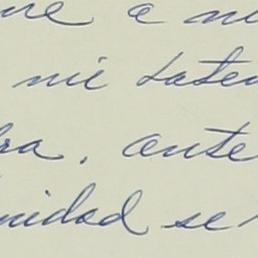 ne a m
mi laten
ra, ante
nidad se